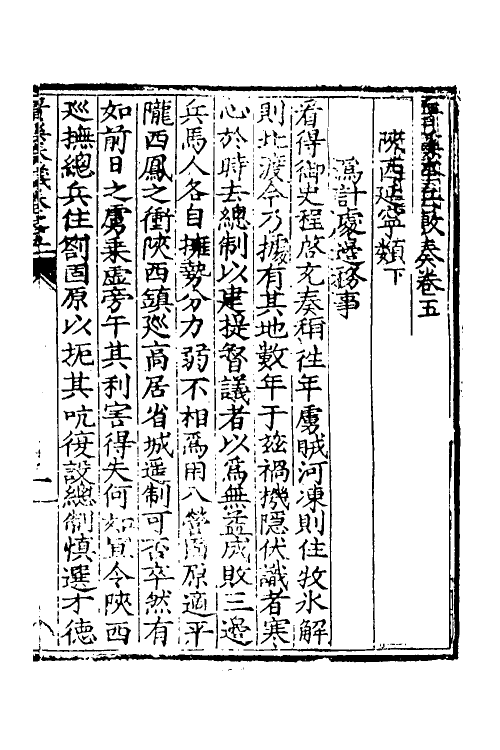 敷奏卷五
陝西延寧類下
爲計處邊務事
看得御史程啓充奏稱往年虜賊河凍則住牧氷解
則北渡今乃據有其地數年于玆禍機隱伏識者寒
心於時去總制以建提督議者以爲無益成敗三邊
兵馬人各自擁勢分力弱不相爲用八營固原適平
隴西鳳之衝陝西鎮廵高居省城遥制可否卒然有
如前日之虜乗虛旁午其利害得失何如宜令陝西
廵撫總兵住劄固原以扼其吭復設總制慎選才德